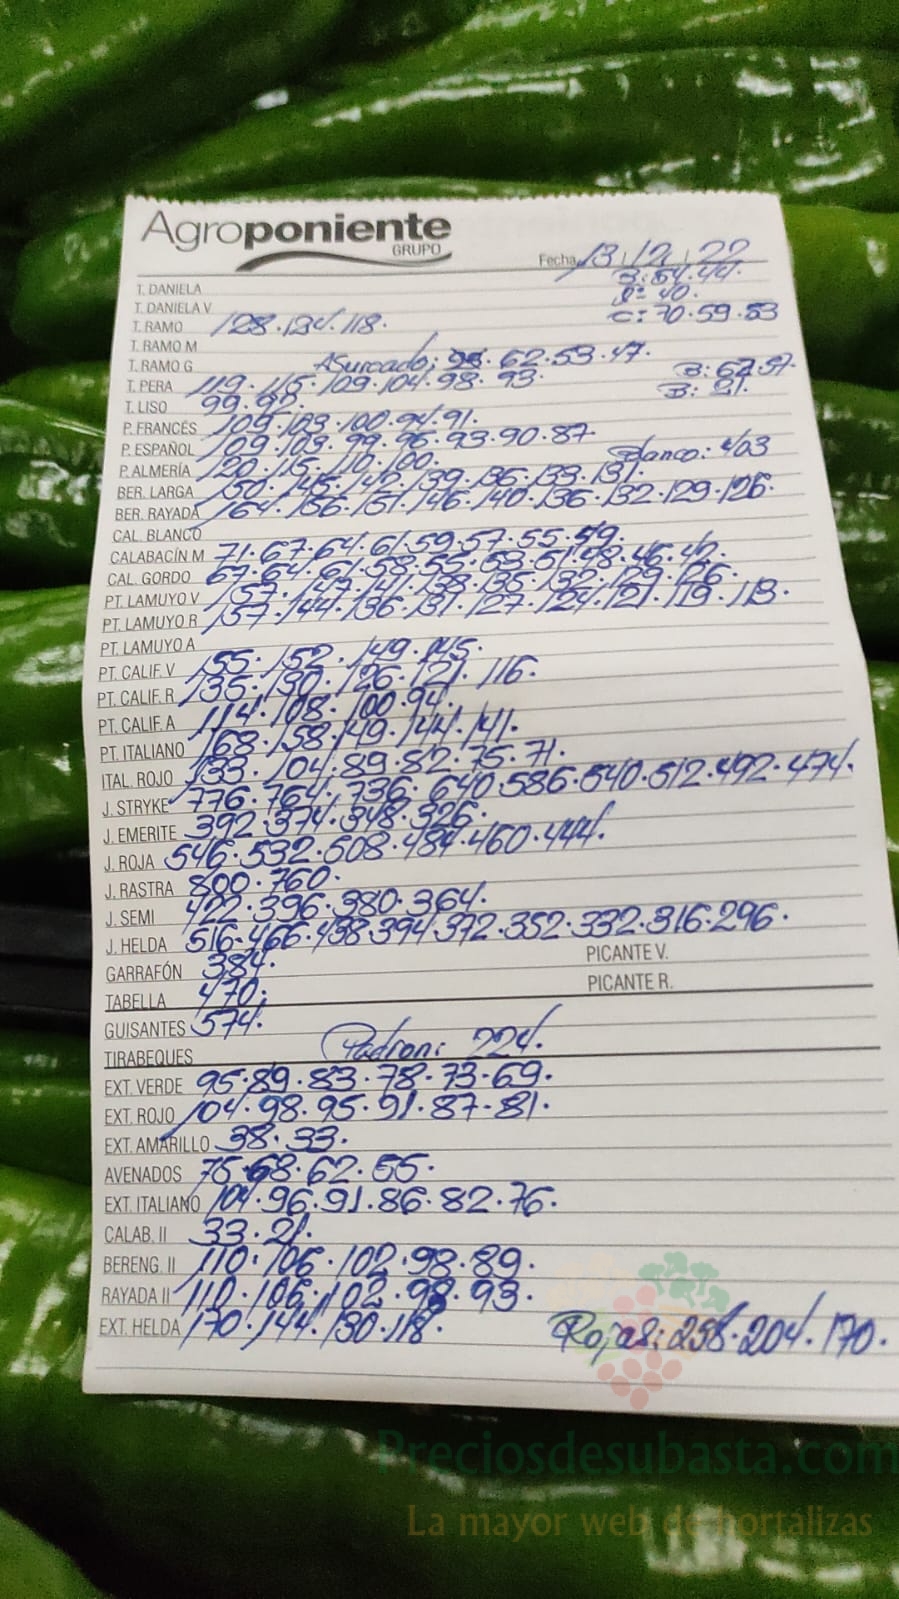 Agroponiente
GRUPO
Fecha 13.12.22
B: 54.44.
P= 40.
C: 70.59.53
T. DANIELA
T. DANIELA V
T. RAMO 128.124.118.
T. RAMO M
T. RAMO G Asurcado: 62.53.47.
T. PERA 119.115.109.104.98.93. B: 62.57.
T. LISO 99.92. B: 21.
P. FRANCÉS 109.103.100.94.91.
P. ESPAÑOL 109.103.99.96.93.90.87.
P. ALMERÍA 120.115.110.100. Blanco: 403
BER. LARGA 150.145.142.139.136.133.131.
BER. RAYADA 164.156.151.146.140.136.132.129.126.
CAL. BLANCO
CALABACÍN M 71.67.64.61.59.57.55.
CAL. GORDO 67.64.61.58.55.53.51.48.46.42.
PT. LAMUYO V 157.147.141.138.135.132.129.126.
PT. LAMUYO R 157.144.136.131.127.124.121.119.113.
PT. LAMUYO A
PT. CALIF. V 155.152.149.145.
PT. CALIF. R 135.130.126.121.116.
PT. CALIF. A 114.108.100.94.
PT. ITALIANO 168.158.149.144.141.
ITAL. ROJO 133.104.89.82.75.71.
J. STRYKE 776.764.736.640.586.540.512.492.474.
J. EMERITE 392.374.348.326.
J. ROJA 546.532.508.484.460.444.
J. RASTRA 800.760.
J. SEMI 422.396.380.364.
J. HELDA 516.466.438.394.372.352.332.316.296.
GARRAFÓN 384. PICANTE V.
TABELLA 470. PICANTE R.
GUISANTES 574.
TIRABEQUES Padron: 224.
EXT. VERDE 95.89.83.78.73.69.
EXT. ROJO 104.98.95.91.87.81.
EXT. AMARILLO 38.33.
AVENADOS 75.68.62.55.
EXT. ITALIANO 104.96.91.86.82.76.
CALAB. II 33.21.
BERENG. II 110.106.102.98.89.
RAYADA II 110.106.102.98.93.
EXT. HELDA 170.144.130.118. Rojas: 258.204.170.
Preciosdesubasta.com
La mayor web de hortalizas